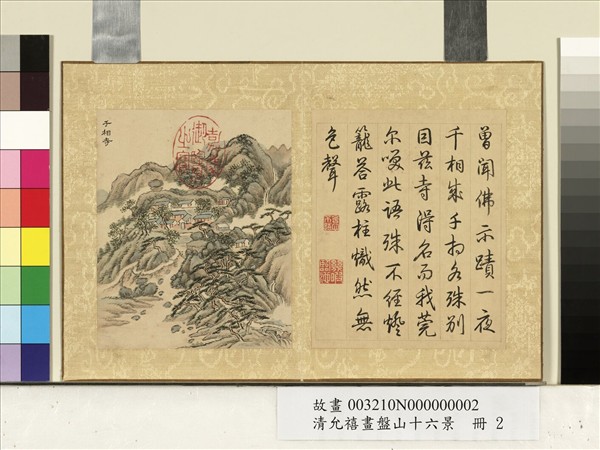 千相寺
曾聞佛示蹟一夜
千相成千相各殊別
因茲寺得名而我莞
尔此語殊不經燈
籠荅露柱熾然無
色聲
故畫 003210N000000002
清允禧畫盤山十六景 冊 2